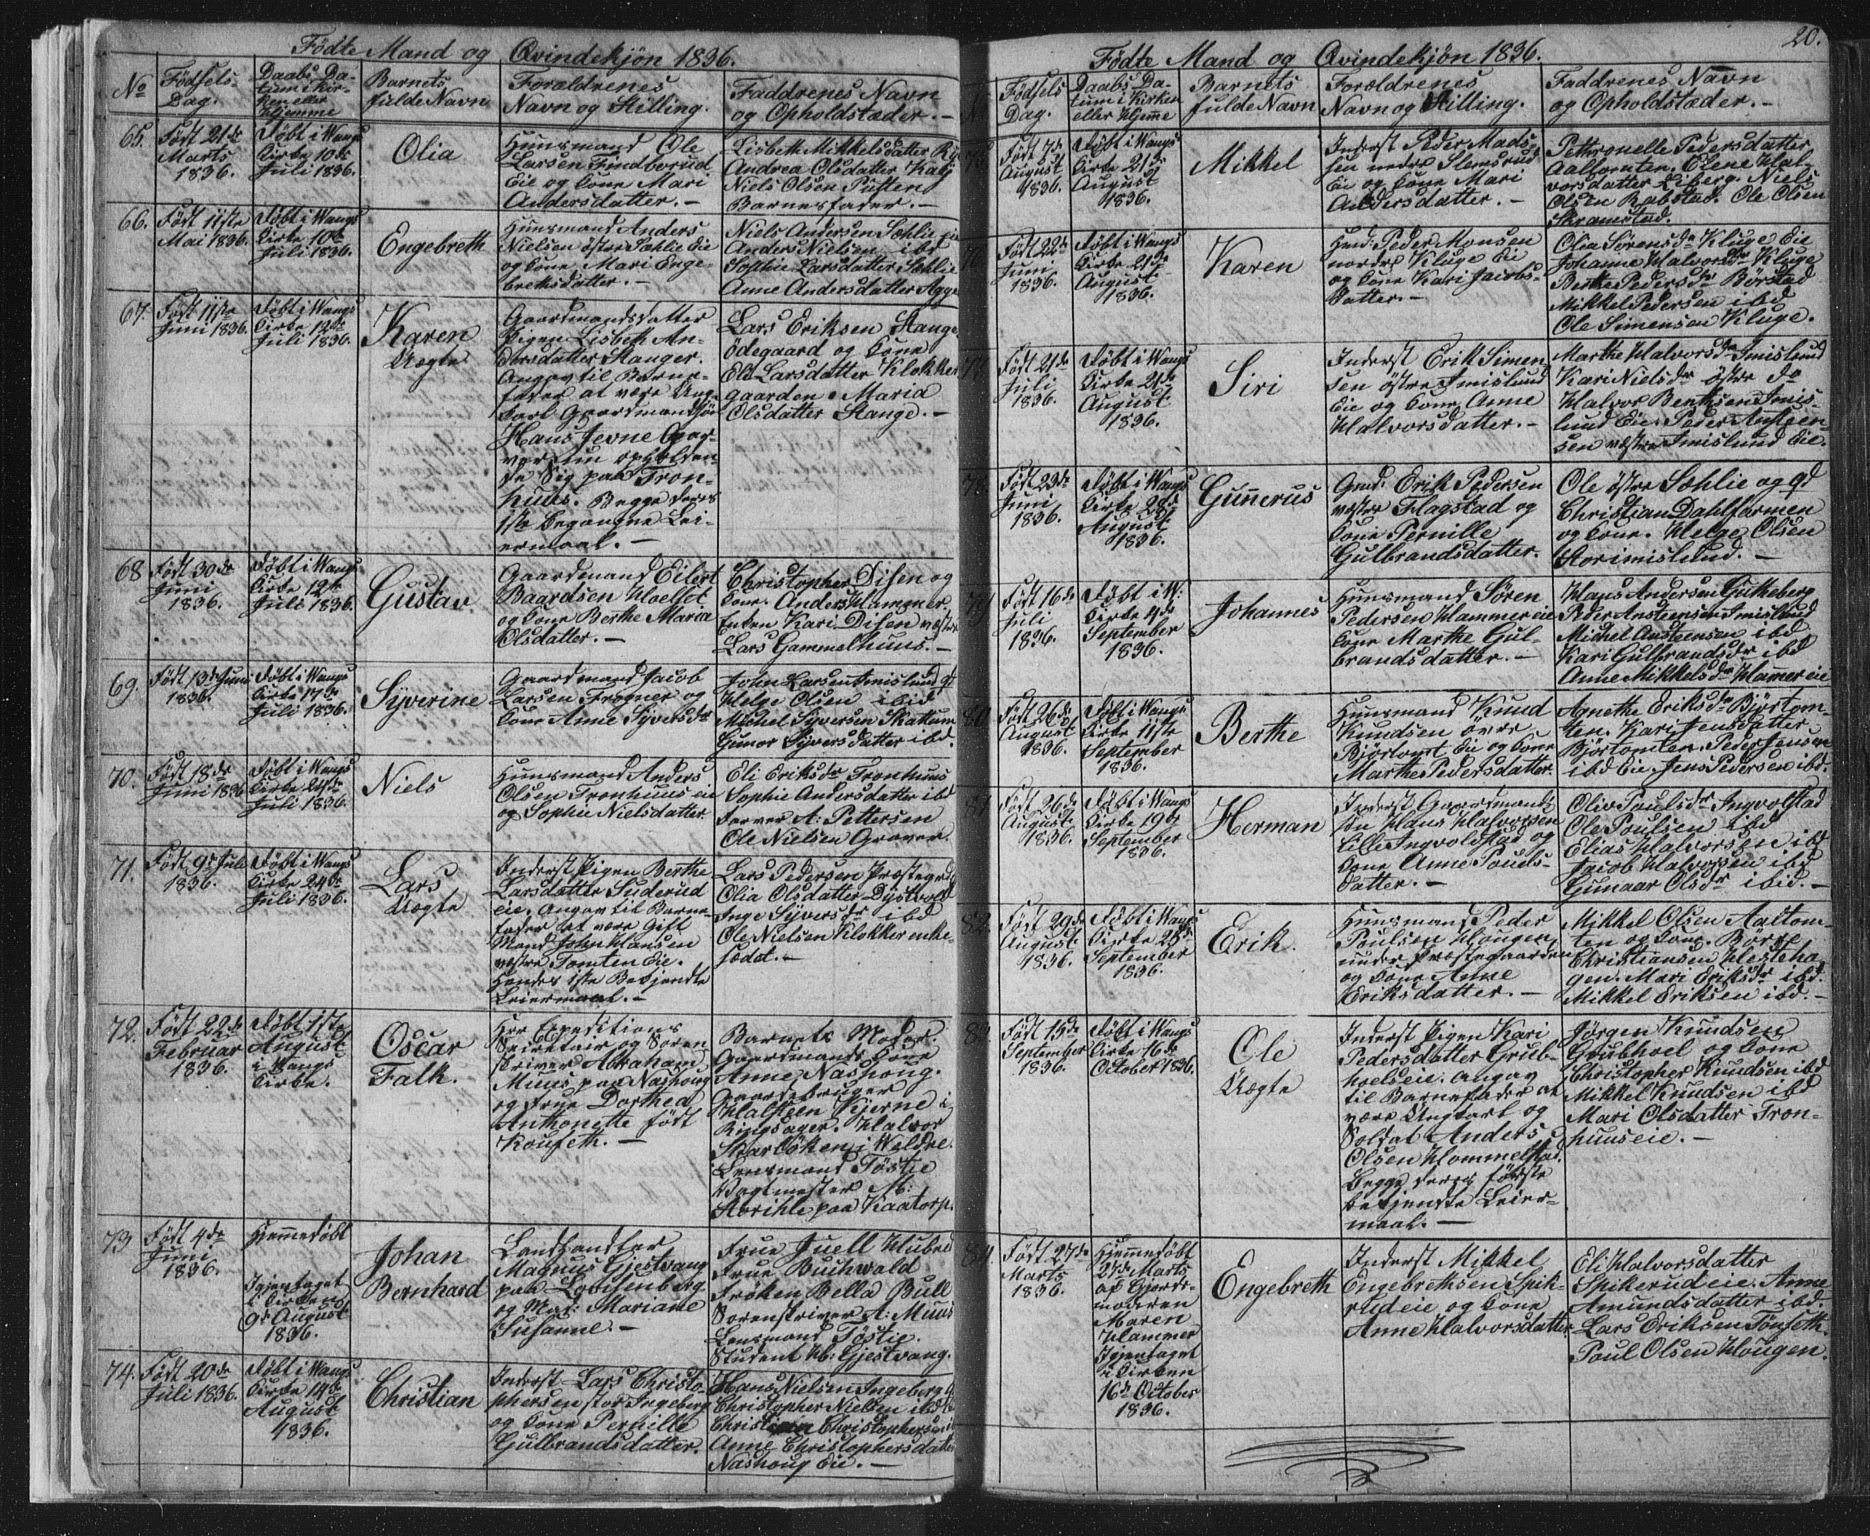 Födte Mand og Qvindekjön 1836.
No Födsels Dag. Daabs Datum i Kirken eller Hjemme Barnets fulde Navn Forældrenes Navn og Stilling. Faddrenes Navn og Opholdstæder. —
65. Födt 21de Marts 1836. Döbt i Wangs Kirke 10de Juli 1836. Olia
Huusmand Ole
Larsen Findborud
Eie og Kone Mari
Andersdatter. —
Lisbeth Mikkelsdatter
Andrea Olsdatter
Niels Olsen Putten
Barnefader. —
66. Födt 11te Mai 1836. Döbt i Wangs Kirke 10de Juli 1836. Engebreth
Huusmand Anders
Nielsen östre Sælie Eie
og Kone Mari Enge-
brethsdatter. —
Niels Andersen Sælie eie
Anders Nielsen ibd
Sophie Larsdatter Sælie
Anne Andersdatter
67. Födt 11te Juni 1836. Döbt i Wangs Kirke 12te Juli 1836. Karen Uægte
Gaardmandsdatter
Pigen Lisbeth An-
dersdatter Stanger.
Angav til Barne-
fader at være Ung-
karl Gaardmandssön
Hans Jevne
opholden-
de Sig paa Tron-
huus. Begge deres
1ste begangne Lei-
ermaal. —
Lars Eriksen Stange
Ödegaard og Kone
Eli Larsdatter Klokker
gaarden Maria
Olsdatter Stange. —
68 Födt 30de Juni 1836. Döbt i Wangs Kirke 12te Juli 1836. Gustav
Gaardmand Eilert
Baardsen Hoelsæt
og Kone Berthe Maria
Olsdatter. —
Christopher Disen og
Kone. Anders Hammer.
Enken Kari Disen västre
Lars Gammelhuus. —
69. Födt 13de Juni 1836. Döbt i Wangs Kirke 17de Juli 1836. Syverine
Gaardmand Jacob
Larsen Frogner og
Kone Anne Syversdr
John Larsen Imislund
Helge Olsen ibid
Michel Syversen Skattum
Gunor Syversdatter ibd.
70. Födt 18de Juni 1836 Döbt i Wangs Kirke 24de Juli 1836. Niels
Huusmand Anders
Olsen Tronhuus eie
og Sophie Nielsdatter.
Eli Eriksdr Tronhuus
Sophie Andersdatter ibd
Farver A: Pettersen
Ole Nielsen Graver.
71. Födt 9de Juli 1836. Döbt i Wangs Kirke 24de Juli 1836. Lars Uægte
Inderst Pigen Berthe
Larsdatter Suderud
eie. Angav til Barne-
fader det være Gift
Mand John Hansen
västre Tomten Eie.
Hendes 1ste Bekjendte
Leiermaal. —
Lars Pedersen Præstegrd
Olia Olsdatter Dystvold
Inge Syversdr ibd
Ole Nielsen Klokker enke-
sædet. —
72. Födt 22de Februar 1836. Döbt 1ste August i Wangs Kirke. Oscar Falk.
Hrr Expeditions
Secretair og Soren
skriver Abraham
Muus paa Nashoug
og Frue Dorthea
Anthonette födt
Roufeth. —
Barnets Moder.
Gaardmands Kone
Anne Nashoug.
Gaardbruger
Halsteen Kjerne i
Ringsager. Halvor
Skarlöken i Weldre.
Lensmand Töstie
Vagtmester M:
paa Kaatorp.
73 Födt 4de Juni 1836. Hjemmedöbt Igjentaget i Kirken 9de August 1836. Johan Bernhard
Landhandler
Magnus Gjestvang
paa Lovisenberg
og Mad: Mariane
Susanne. —
Frue Juell Hubred
Frue Buchwald
Fröken Bella Bull
Sorenskriver A: Muus
Lensmand Töstie.
Student H: Gjestvang.
74. Födt 20de Juli 1836. Döbt i Wangs Kirke 14de August 1836. Christian
Inderst Lars Christo-
phersen stor Ingeberg
og Kone Pernille
Gulbrandsdatter.
Hans Nielsen Ingeberg
Christopher Nielsen ibd
Christian Christophersen
Anne Christophersdatter
Nashoug Eie. —
20.
Födte Mand og Qvindekjön 1836.
Födsels Dag. Daabs Datum i Kirken eller Hjemme Barnets fulde Navn Forældrenes Navn og Stilling. Faddrenes Navn og Opholdstæder. —
75 Födt 7de August 1836. Döbt i Wangs Kirke 21de August 1836. Mikkel
Inderst Peder Mads-
sen nedre Slemsrud
Eie og Kone Mari
Andersdatter. —
Pethronelle Pedersdatter
Aalbomten. Olene Hal-
vorsdatter Liberg. Niels
Olsen Rabstad. Ole Olsen
Skramstad.
76 Födt 22de Juni 1836. Döbt i Wangs Kirke 21de August 1836. Karen
Hmd. Peder Monsen
nordre Kluge Eie
og Kone Kari Jacobs-
datter. —
Olia Sörensdr Kluge Eie
Johanne Halvorsdr Kluge
Berthe Pedersdr Börstad
Mikkel Pedersen ibd
Ole Simensen Kluge.
77 Födt 21de Juli 1836. Döbt i Wangs Kirke 21de August 1836. Siri
Inderst Erik Simen-
sen östre Imislund
Eie og Kone Anne
Halvorsdatter. —
Marthe Halvorsdr Imislund
Kari Nielsdr östre do
Halvor Berthsen Imis-
lund Eie. Peder Ansteen-
sen västre Imislund Eie.
78 Födt 23de Juni 1836. Döbt i Wangs Kirke 28de August 1836. Gunnerus
Gmd. Erik Pedersen
västre Flagstad og
Kone Pernille
Gulbrandsdatter.
Ole östre Sælie og
Christian Dahlfarmen
og Kone. Helge Olsen
Horimislund. —
79 Födt 16de Juli 1836. Döbt i W: Kirke 4de September 1836. Johannes
Huusmand Sören
Pedersen Hammer eie
Kone Marthe Gul-
brandsdatter. —
Hans Andersen Gutheberg
Peder Ansteensen Imislund
Michel Ansteensen ibd
Kari Gulbrandsdr ibd
Anne Mikkelsdr Hamer eie
80. Födt 26de August 1836. Döbt i Wangs Kirke 11te September 1836. Berthe
Huusmand Knud
Knudsen övre
Björtomt Eie og Kone
Marthe Pedersdatter.
Agnethe Eriksdr Björtom-
ten. Kari Jensdatter
Björtomten. Peder Jensen
ibd Eie. Jens Pedersen ibd.
81 Födt 26de August 1836. Döbt i Wangs Kirke 19de September 1836. Herman
Inderst Gaardmands
Sn Hans Halvorsen
Lille Ingvoldstad og
Kone Anne Pouls-
datter. —
Oliv Poulsdr Ingvolstad
Ole Poulsen ibd
Elias Halvorsen ibd
Jacob Halvorsen ibd
Gunaar Olsdr ibid. —
82. Födt 29de August 1836. Döbt i Wangs Kirke 25de September 1836. Erik.
Huusmand Peder
Poulsen Hougen
under Præstegaarden
og Kone Anne
Eriksdatter. —
Mikkel Olsen Aaltom-
ten og Kone. Börre
Christiansen Hesteha-
gen. Mari Eriksdr ibd.
Mikkel Eriksen ibd. —
83. Födt 15de September 1836. Döbt i Wangs Kirke 16de October 1836. Ole Uægte
Inderst Pigen Kari
Pedersdatter Grub-
hoelseie. Angav
til Barnefader at
være Ungkarl og
Soldat Anders
Olsen Hommelstad.
Begge deres förste
bekjendte Leier-
maal. —
Jörgen Knudsen
Grubhoel og Kone
Christopher Knudsen ibd
Mikkel Knudsen ibd
Mari Olsdatter Tron-
huuseie. —
84. Födt 27de Marts 1836. Hjemmedöbt 28de Marts af Gjorde-
moderen Maren Hammer Igjentaget i Kirken 16de October 1836. Engebreth
Inderst Mikkel
Engebrethsen Spik-
rud eie og Kone
Anne Halvorsdatter
Eli Halvorsdatter
Spikerud eie. Anne
Amundsdatter ibd.
Lars Eriksen Tönseth.
Poul Olsen Hougen.